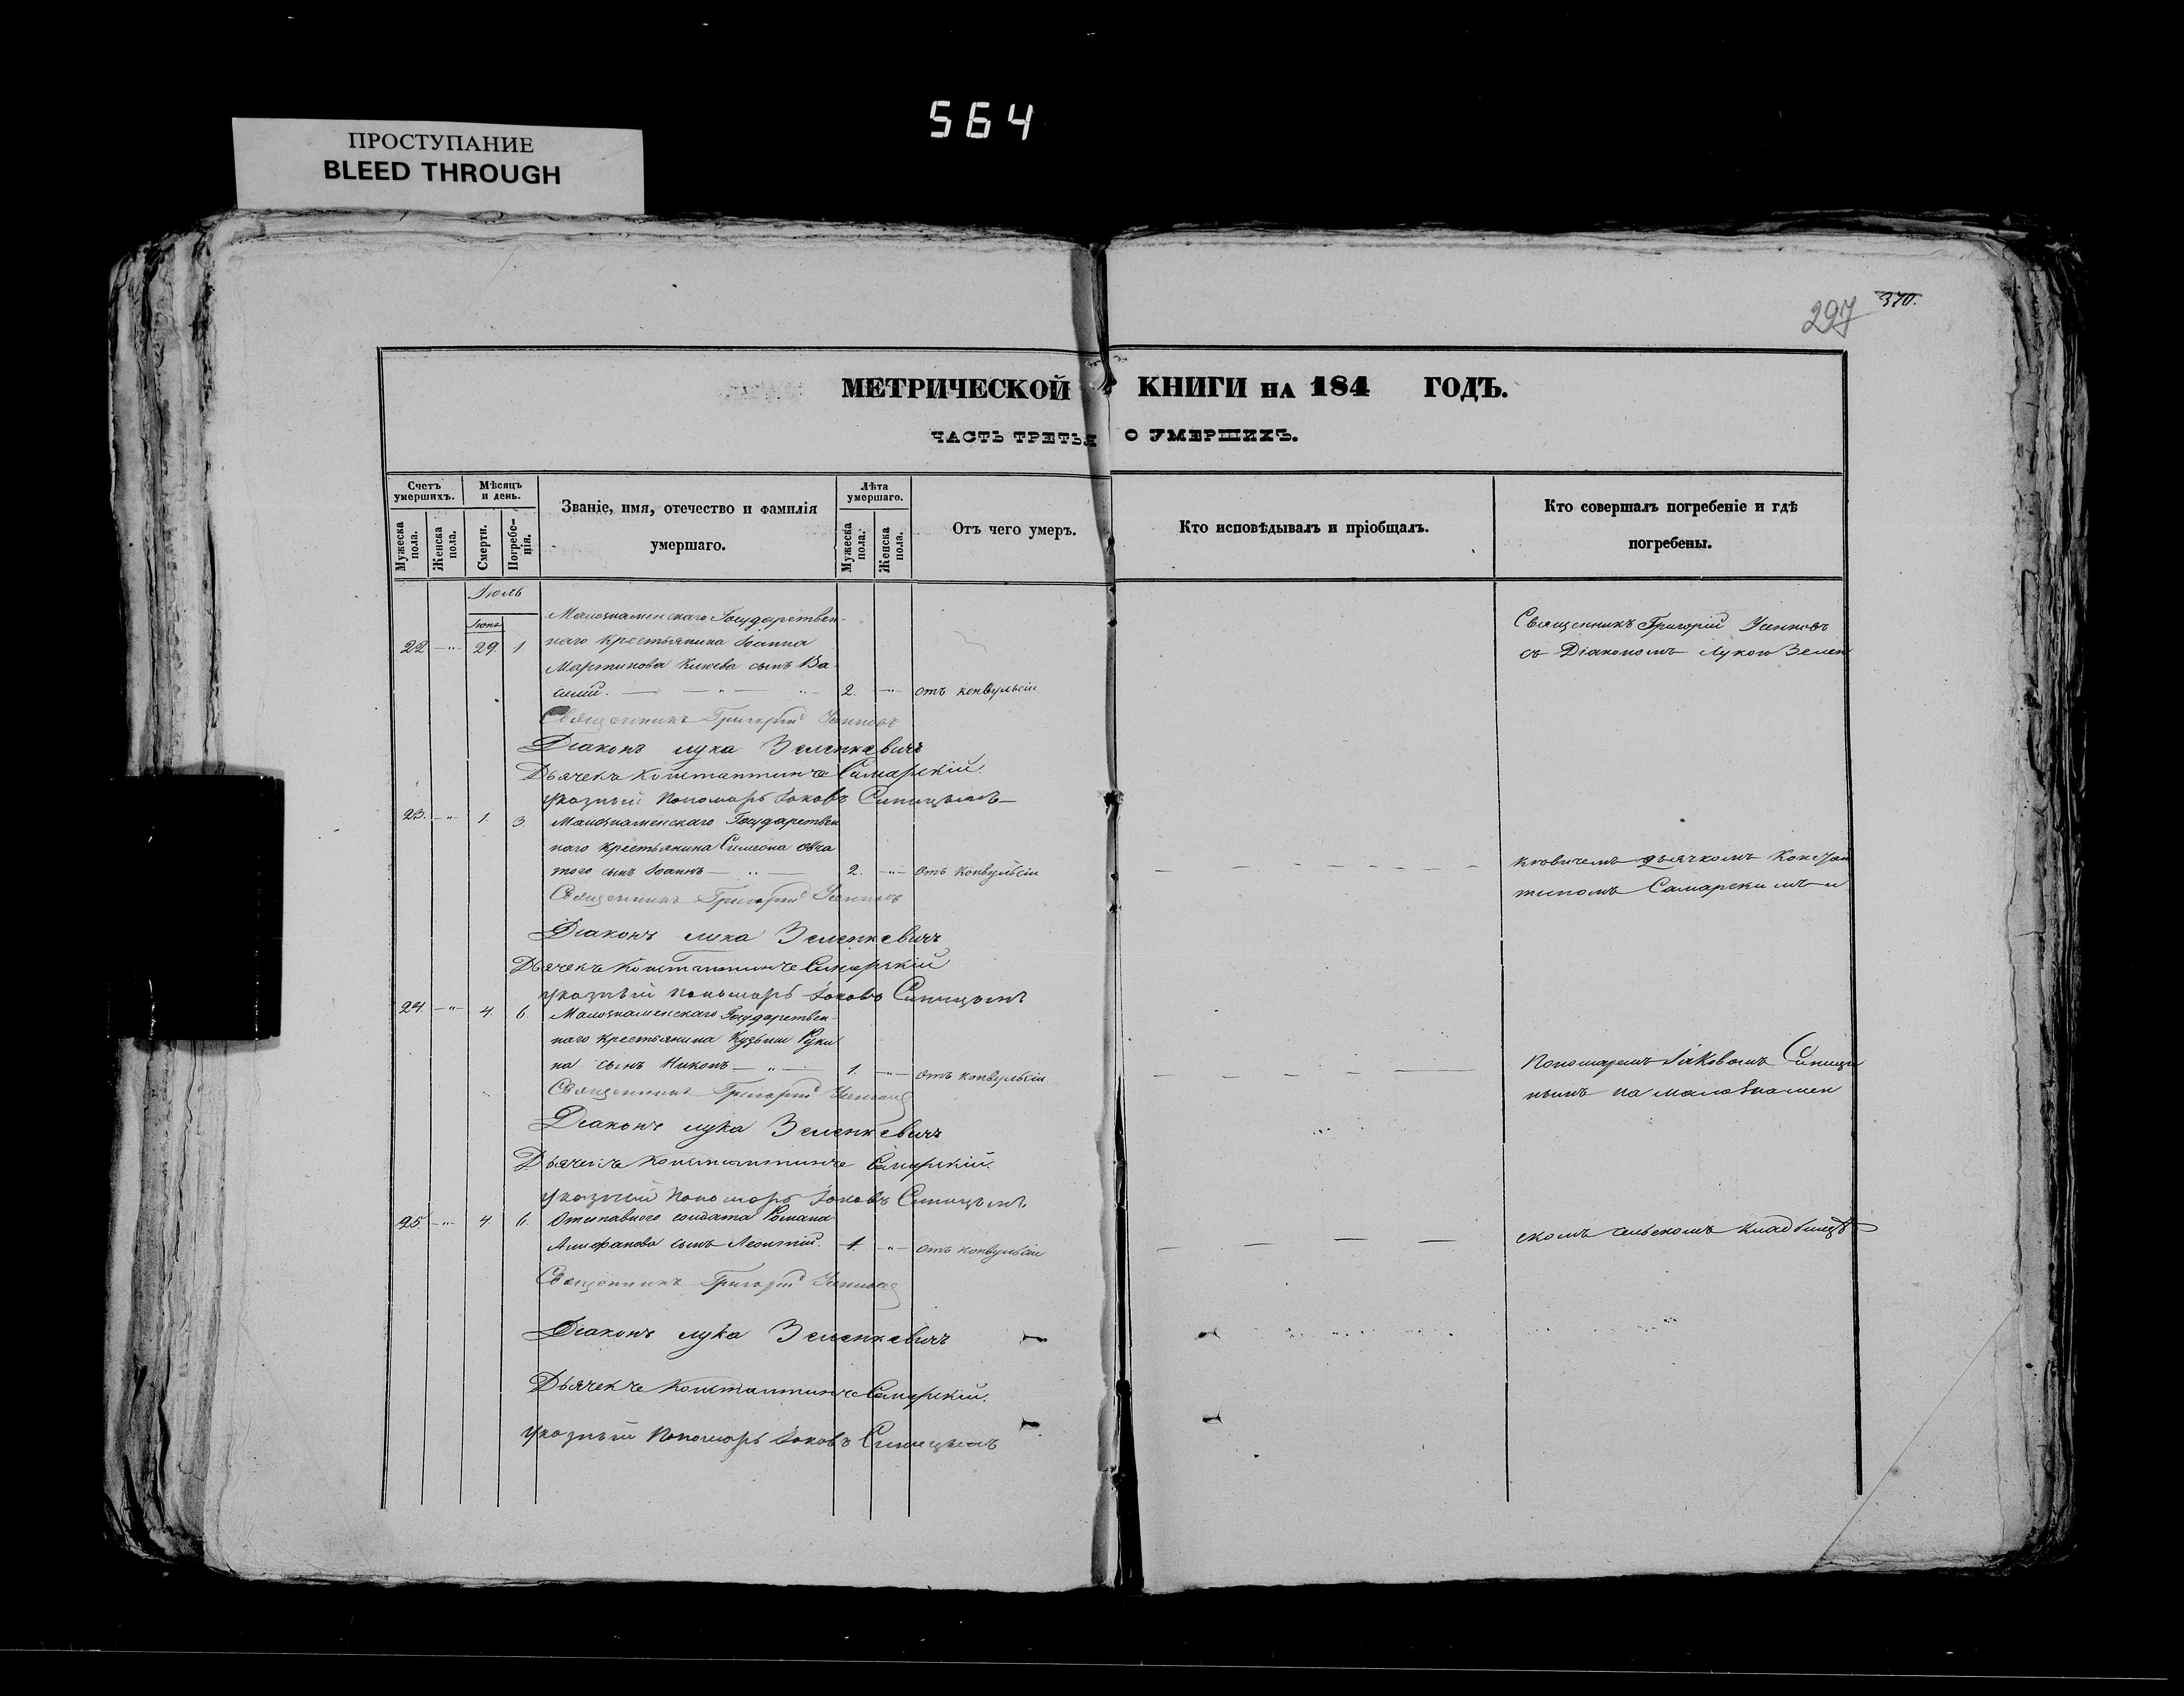 564
ПРОСТУПАНИЕ
BLEED THROUGH
297 370.
МЕТРИЧЕСКОЙ КНИГИ НА 184 ГОДЪ.
ЧАСТЬ ТРЕТЬЯ О УМЕРШИХЪ.
Счетъ умершихъ.
Мужеска пола.
Женска пола.
Мѣсяцъ и день.
Смерти.
Погребе-
нія.
Званіе, имя, отечество и фамилія
умершаго.
Лѣта умершаго.
Мужеска пола.
Женска пола.
Отъ чего умеръ.
Кто исповѣдывалъ и пріобщалъ.
Кто совершалъ погребеніе и гдѣ
погребены.
Іюль
Іюнь
22 29. 1
Малознаменскаго Государствен-
наго крестьянина Іоанна
Мартинова сынъ Ва
силій. 2. отъ конвульсіи
Священникъ Григорий
Діаконъ Лука Зеленкевичъ
Дьячекъ Константинъ Самарскій
указный Пономарь Іаковъ Синицынъ
23. 1. 3
Малознаменскаго Государствен
наго крестьянина Симеона
того сынъ Іоаннъ 2. отъ конвульсіи
Священникъ Григорий
Діаконъ Лука Зеленкевичъ
Дьячекъ Константинъ Самарскій
указный Пономарь Іаковъ Синицынъ
24. 4. 6.
Малознаменскаго Государствен-
наго крестьянина Кузьмы Руки
на сынъ Никонъ 1. отъ конвульсіи
Священникъ Григорий
Діаконъ Лука Зеленкевичъ
Дьячекъ Константинъ Самарскій.
указный Пономарь Іаковъ Синицынъ
25 4 6.
Отставного солдата Романа
сынъ Леонтій. 1. отъ конвульсіи
Священникъ Григорий
Діаконъ Лука Зеленкевичъ
Дьячекъ Константинъ Самарскій.
указный Пономарь Іаковъ Синицынъ
Священникъ Григорій
съ Діакономъ Лукою Зелен
кевичемъ дьячкомъ Констан
тиномъ Самарскимъ и
Пономаремъ Іаковомъ Синици
нымъ на Малознамен
скомъ сельскомъ кладбищѣ